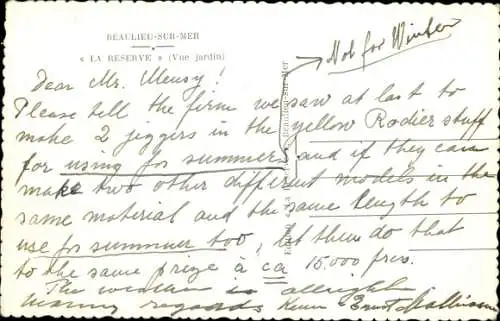 BEAULIEU-SUR-MER
« LA RESERVE » (Vue jardin)
Not for Winter
Dear Mr. Meusy!
Please tell the firm we saw at last to
make 2 jiggers in the yellow Rodier stuff
for using for summers and if they can
make two other different models in the
same material and the same length to
use for summer too, let them do that
to the same prize à ca 15.000 frcs.
The weather is allright
Many regards
Beaulieu-sur-Mer